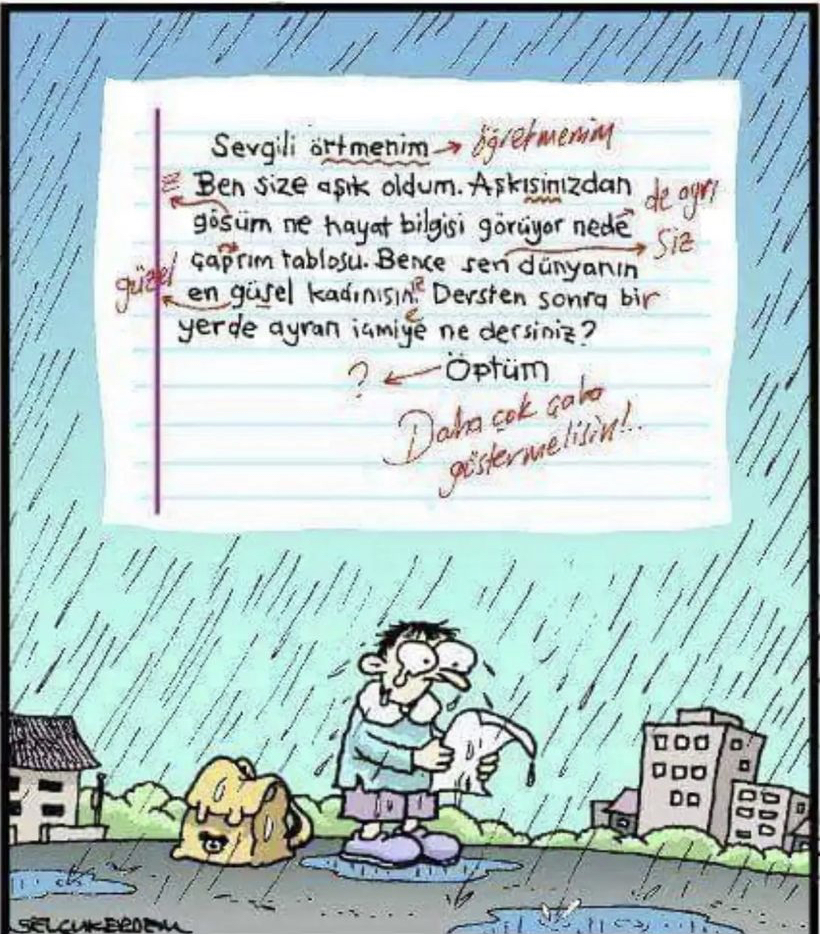 Sevgili örtmenim → öğretmenim
z Ben size aşık oldum. Aşkısinızdan de ayrı
gösüm ne hayat bilgisi görüyor nede siz
çaprım tablosu. Bence sen dünyanın
güzel en güsel kadınısın. Dersten sonra bir
yerde ayran içmiye e ne dersiniz?
? ← Öptüm
Daha çok çaba
göstermelisin!..
SELÇUK ERDEM